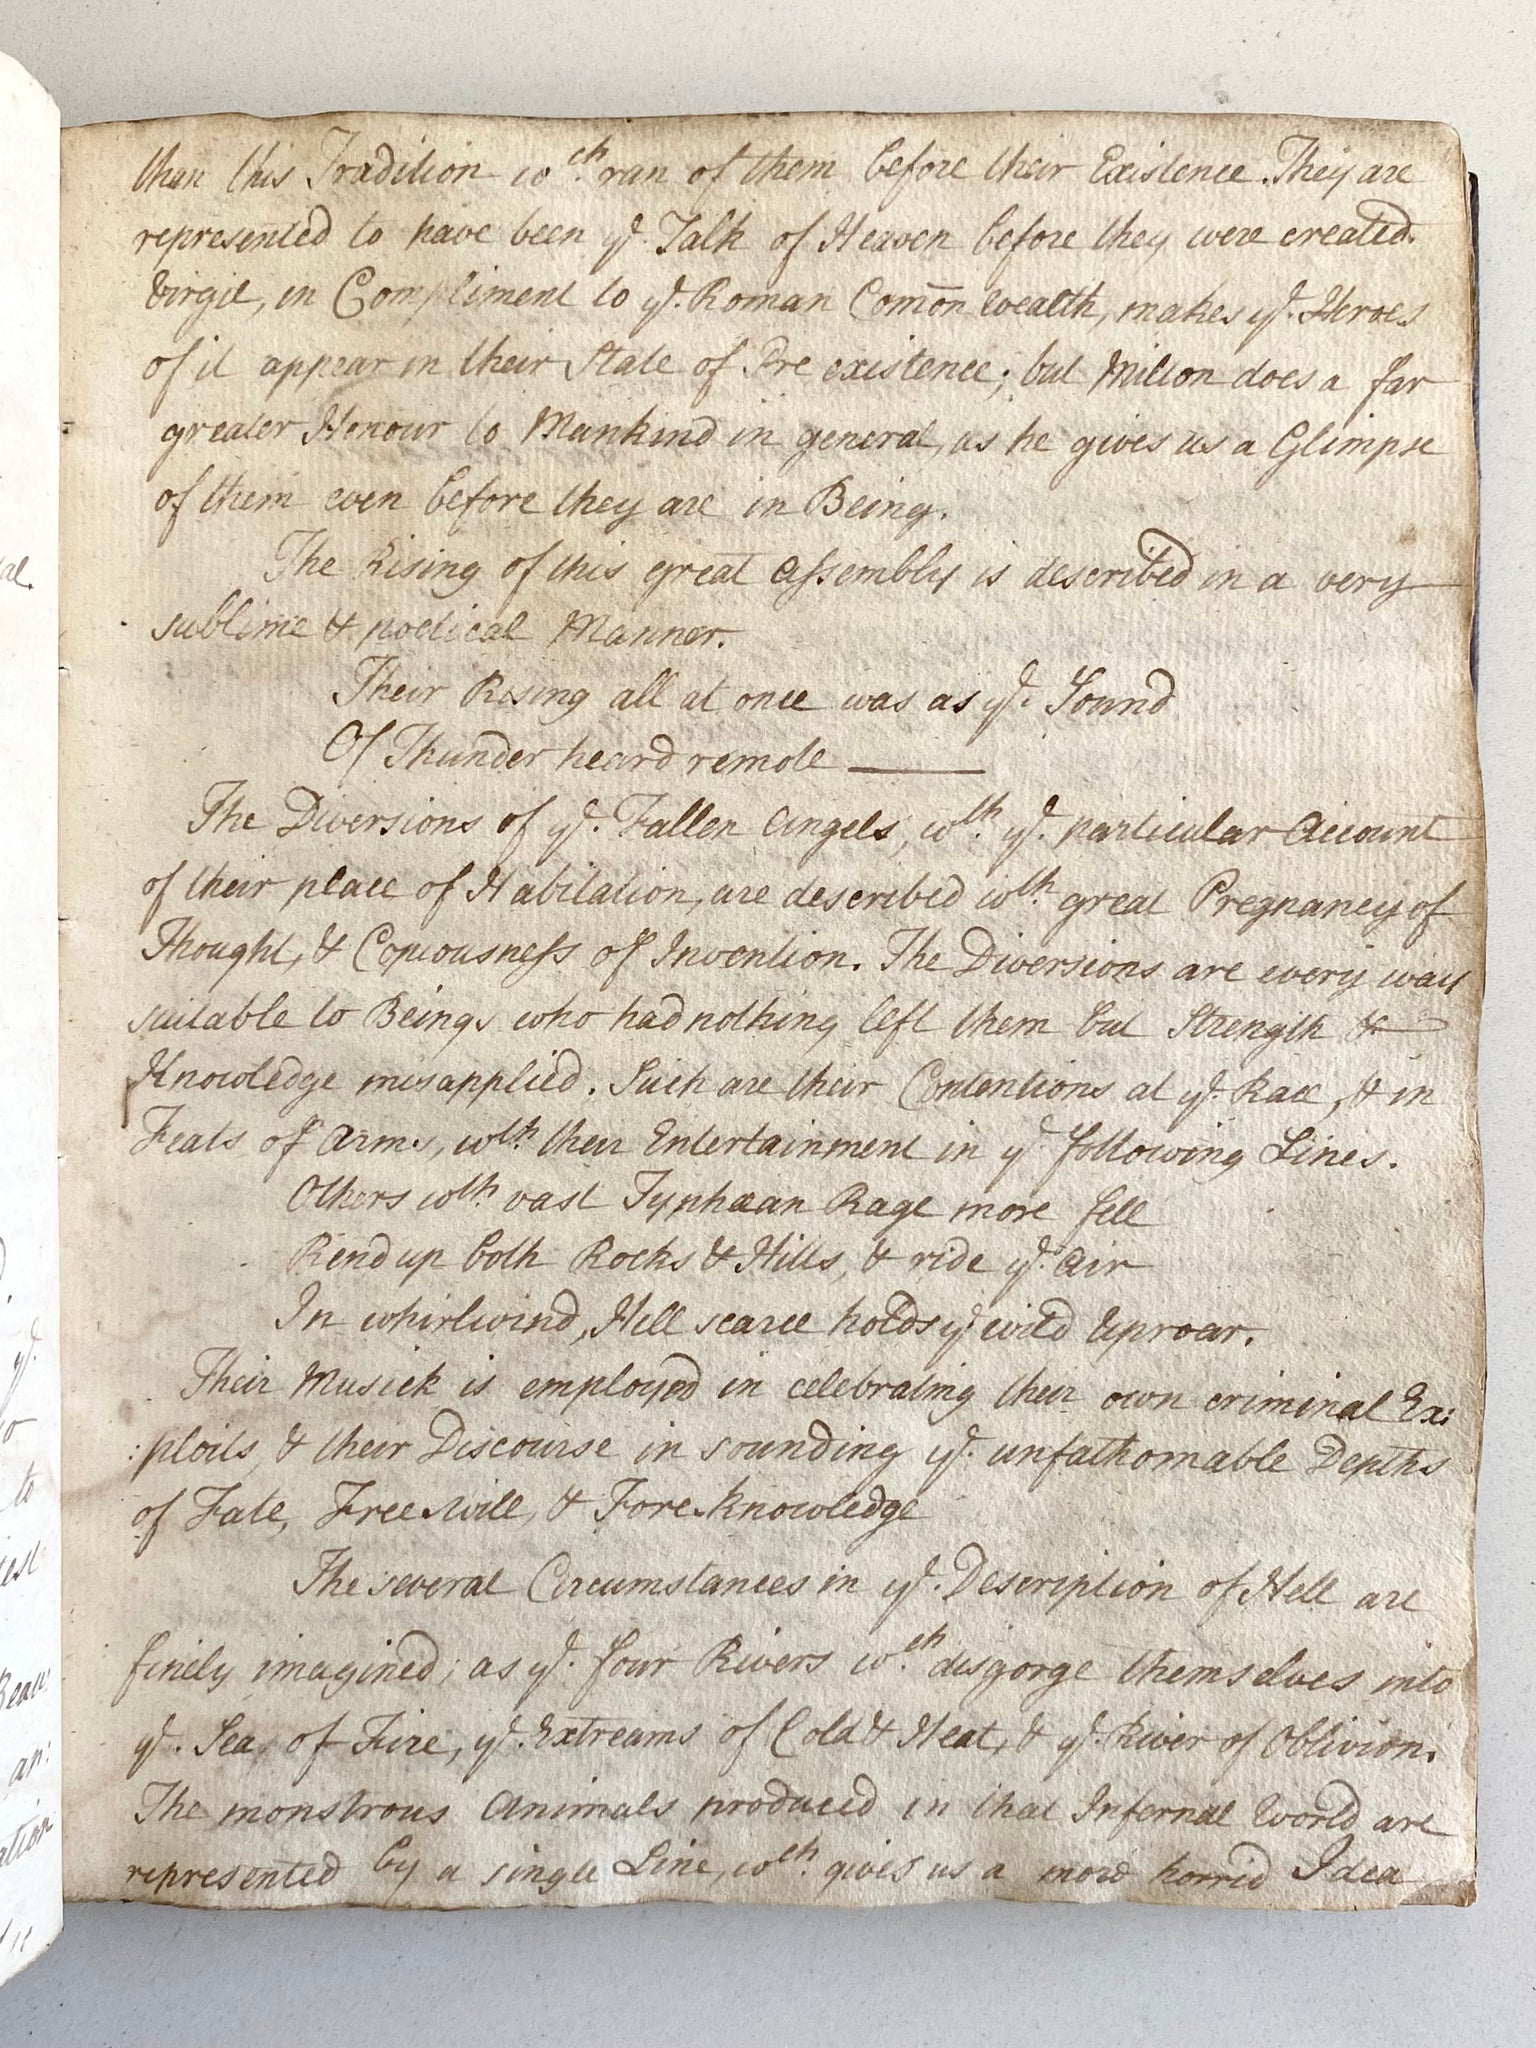 than this Tradition wch. ran of them before their Existence. They are
represented to have been ye. Talk of Heaven before they were created.
Virgil, in Compliment to ye. Roman Com̄on Wealth, makes ye. Heroes
of it appear in their State of Pre existence; but Milton does a far
greater Honour to Mankind in general, as he gives us a Glimpse
of them even before they are in Being.
The Rising of this great Assembly is described in a very
sublime & poetical Manner.
Their Rising all at once was as ye. Sound
Of Thunder heard remote ———
The Diversions of ye. Fallen Angels, wth. ye. particular Account
of their place of Habitation, are described wth. great Pregnancy of
Thought, & Copiousness of Invention. The Diversions are every way
suitable to Beings who had nothing left them but Strength &
Knowledge misapplied. Such are their Contentions at ye. Race, & in
Feats of Arms, wth. their Entertainment in ye. following Lines.
Others wth. vast Typhæan Rage more fell
Rend up both Rocks & Hills, & ride ye. Air
In whirlwind, Hell scarce holds ye wild Uproar.
Their Musick is employed in celebrating their own criminal Ex:
:ploits, & their Discourse in sounding ye. unfathomable Depths
of Fate, Free-will, & Fore-knowledge
The several Circumstances in ye. Description of Hell are
finely imagined; as ye. four Rivers wch. disgorge themselves into
ye. Sea, of Fire, ye. Extreams of Cold & Heat, & ye. River of Oblivion.
The monstrous Animals produced in that Infernal World are
represented by a single Line, wch. gives us a more horrid Idea